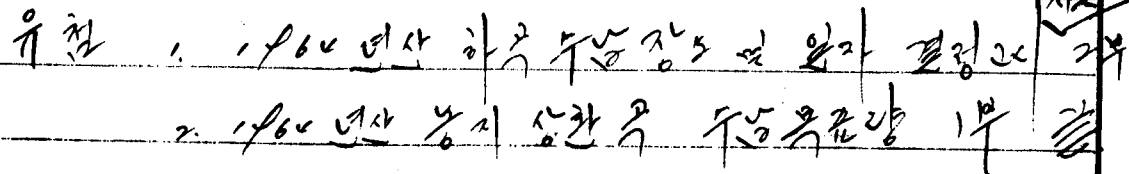 유첨 1. 1964년산 하곡 수납장소 및 일자 결정표 2부
2. 1964년산 농지 상환곡 수납목표량 1부 끝